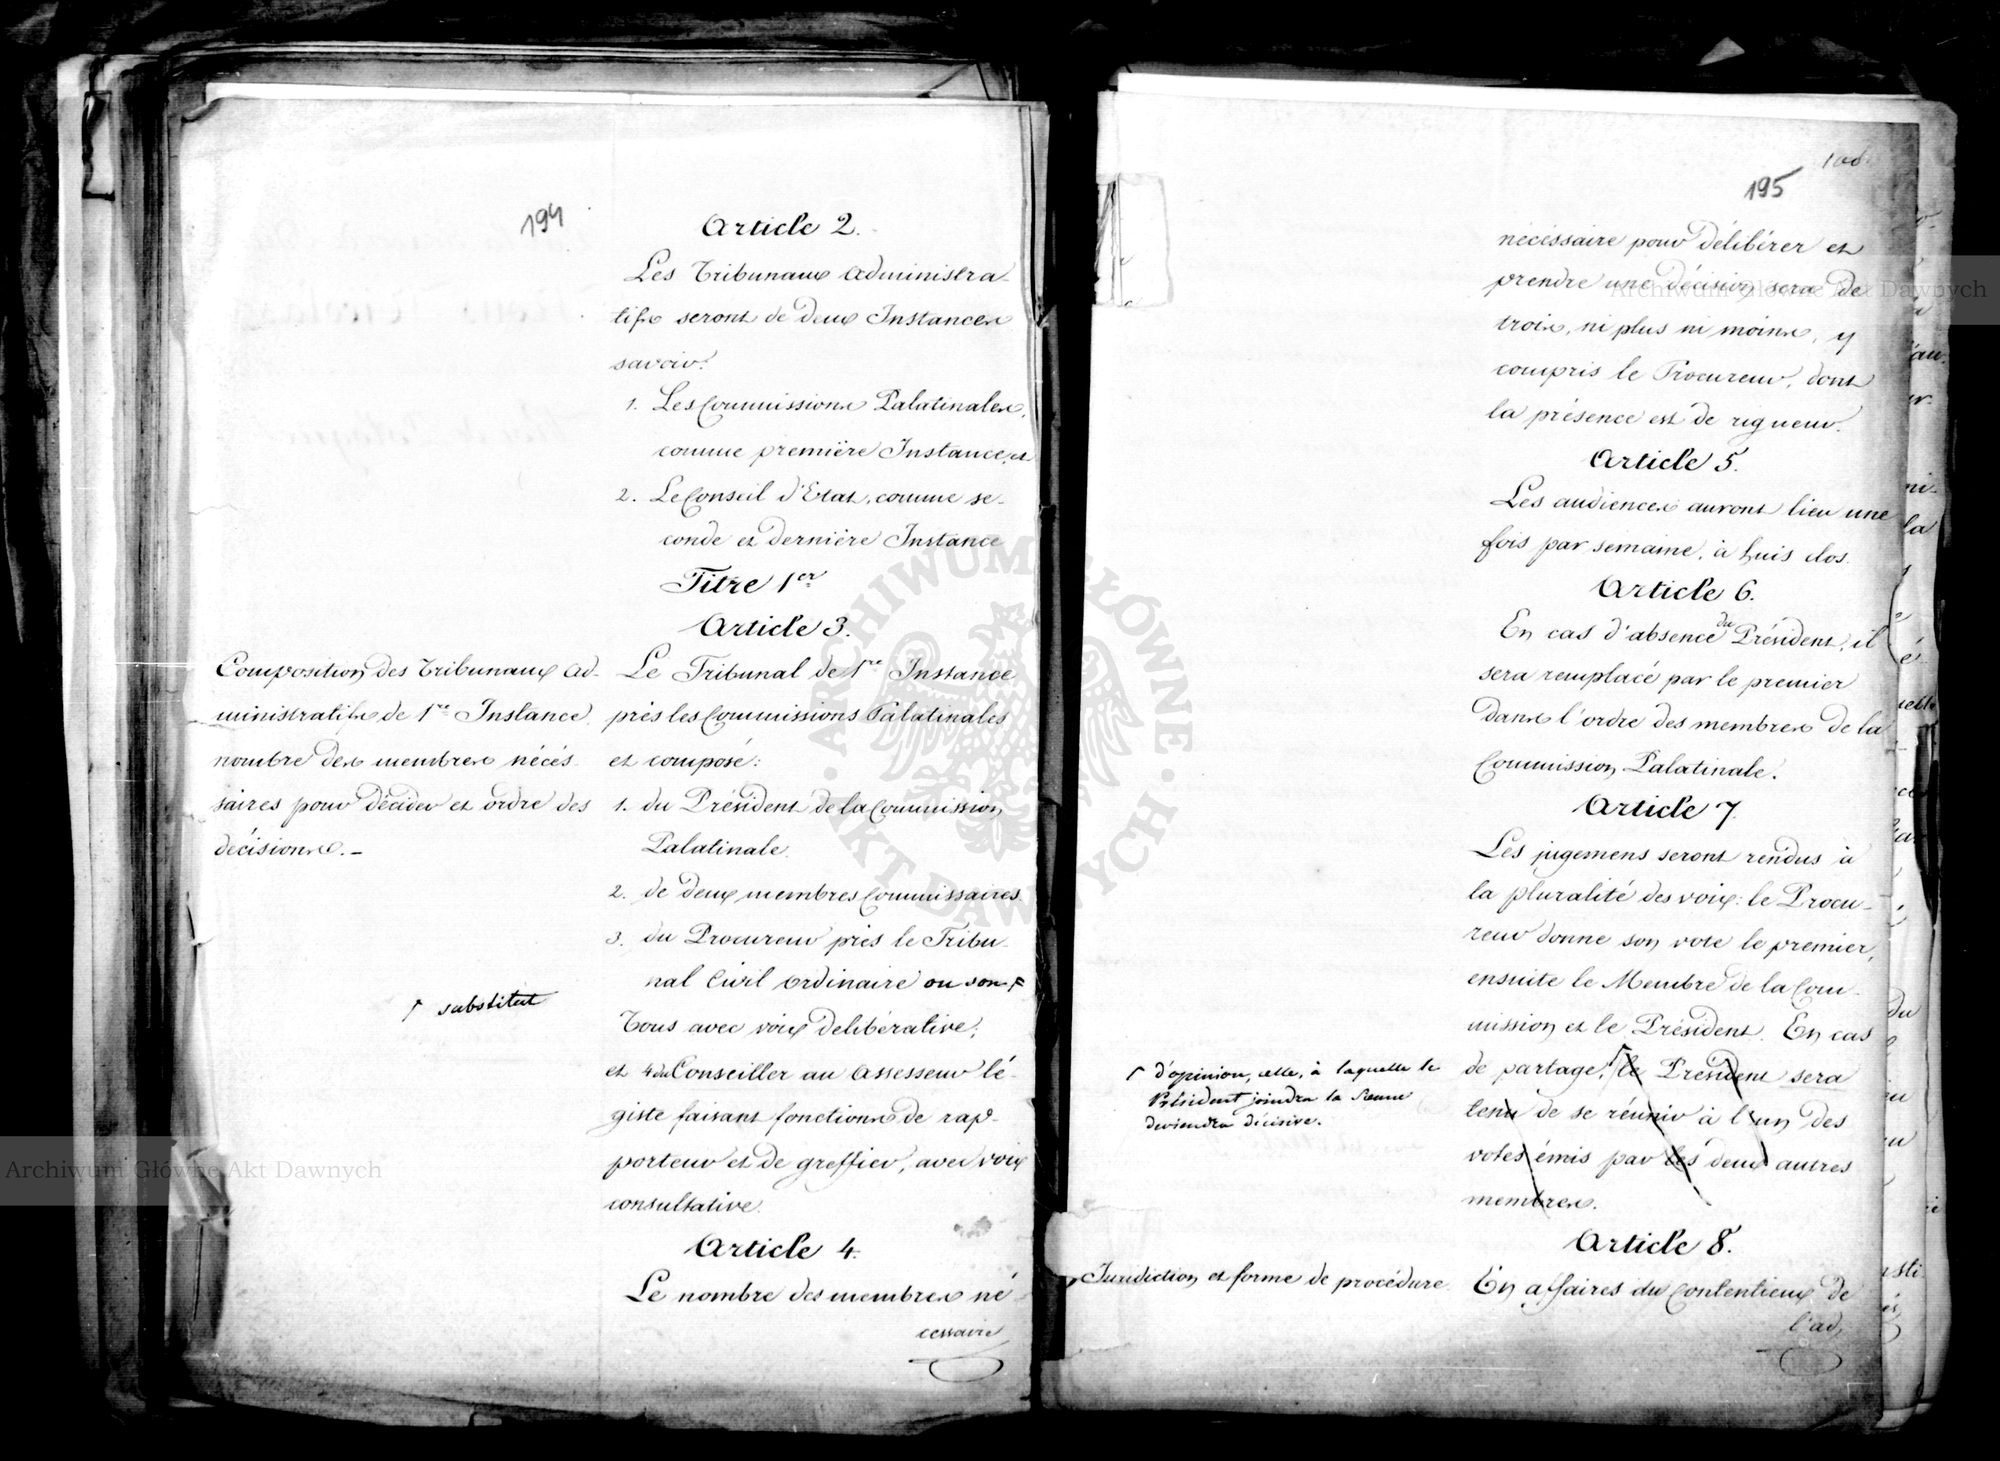 194
Article 2.
Les Tribunaux administra-
tifs seront de deux Instances
savoir:
1. Les Commissions Palatinales,
comme première Instance, et
2. Le Conseil d'Etat, comme se-
conde et dernière Instance
Titre 1er
Article 3.
Composition des Tribunaux ad-
ministratifs de 1re Instance,
nombre des membres nécés-
saires pour décider et ordre des
décisions. -
Le Tribunal de 1re Instance
près les Commissions Palatinales
est composé:
1. du Président de la Commission
Palatinale.
2. de deux membres Commissaires
3. du Procureur près le Tribu-
nal Civil ordinaire ou son
substitut
Tous avec voix delibérative;
et 4 du Conseiller ou Assesseur lé-
giste faisant fonctions de rap-
porteur et de greffier, avec voix
consultative.
Article 4.
Le nombre des membres né
cessaire
195
nécessaire pour délibérer et
prendre une décision sera de
trois, ni plus ni moins, y
compris le Procureur, dont
la présence est de rigueur.
Article 5.
Les audiences auront lieu une
fois par semaine, à huis clos.
Article 6.
En cas d'absence du Président, il
sera remplacé par le premier
dans l'ordre des membres de la
Commission Palatinale.
Article 7.
Les jugemens seront rendus à
la pluralité des voix: le Procu-
reur donne son vote le premier,
ensuite le Membre de la Com-
mission et le Président. En cas
de partage, le Président sera
tenu de se réunir à l'un des
votes émis par les deux autres
membres.
d'opinion, celle, à laquelle le
Président joindra la Sienne
deviendra décisive.
Article 8.
Juridiction et forme de procédure.
En affaires du Contentieux de
l'ad,
Archiwum Główne Akt Dawnych
Archiwum Główne Akt Dawnych
ARCHIWUM GŁÓWNE · AKT DAWNYCH ·